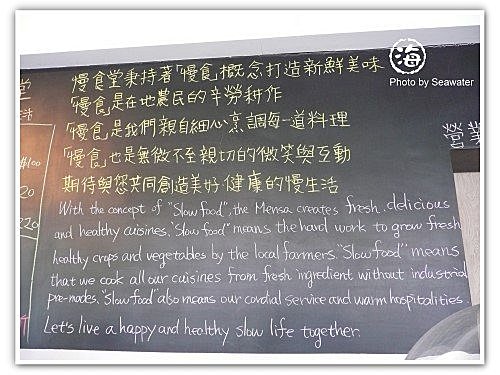 海
Photo by Seawater
慢食堂秉持著「慢食」概念打造新鮮美味
「慢食」是在地農民的辛勞耕作
「慢食」是我們親自細心烹調每一道料理
「慢食」也是無微不至親切的微笑與互動
期待與您共同創造美好健康的慢生活
With the concept of "Slow food", the Mensa creates fresh, delicious
and healthy cuisines. "Slow food" means the hard work to grow fresh
healthy crops and vegetables by the local farmers. "Slow food" means
that we cook all our cuisines from fresh ingredient without industrial
pre-mades. "Slow food" also means our cordial service and warm hospitalities.
Let's live a happy and healthy slow life together.
堂
生活
100
20
220
營業